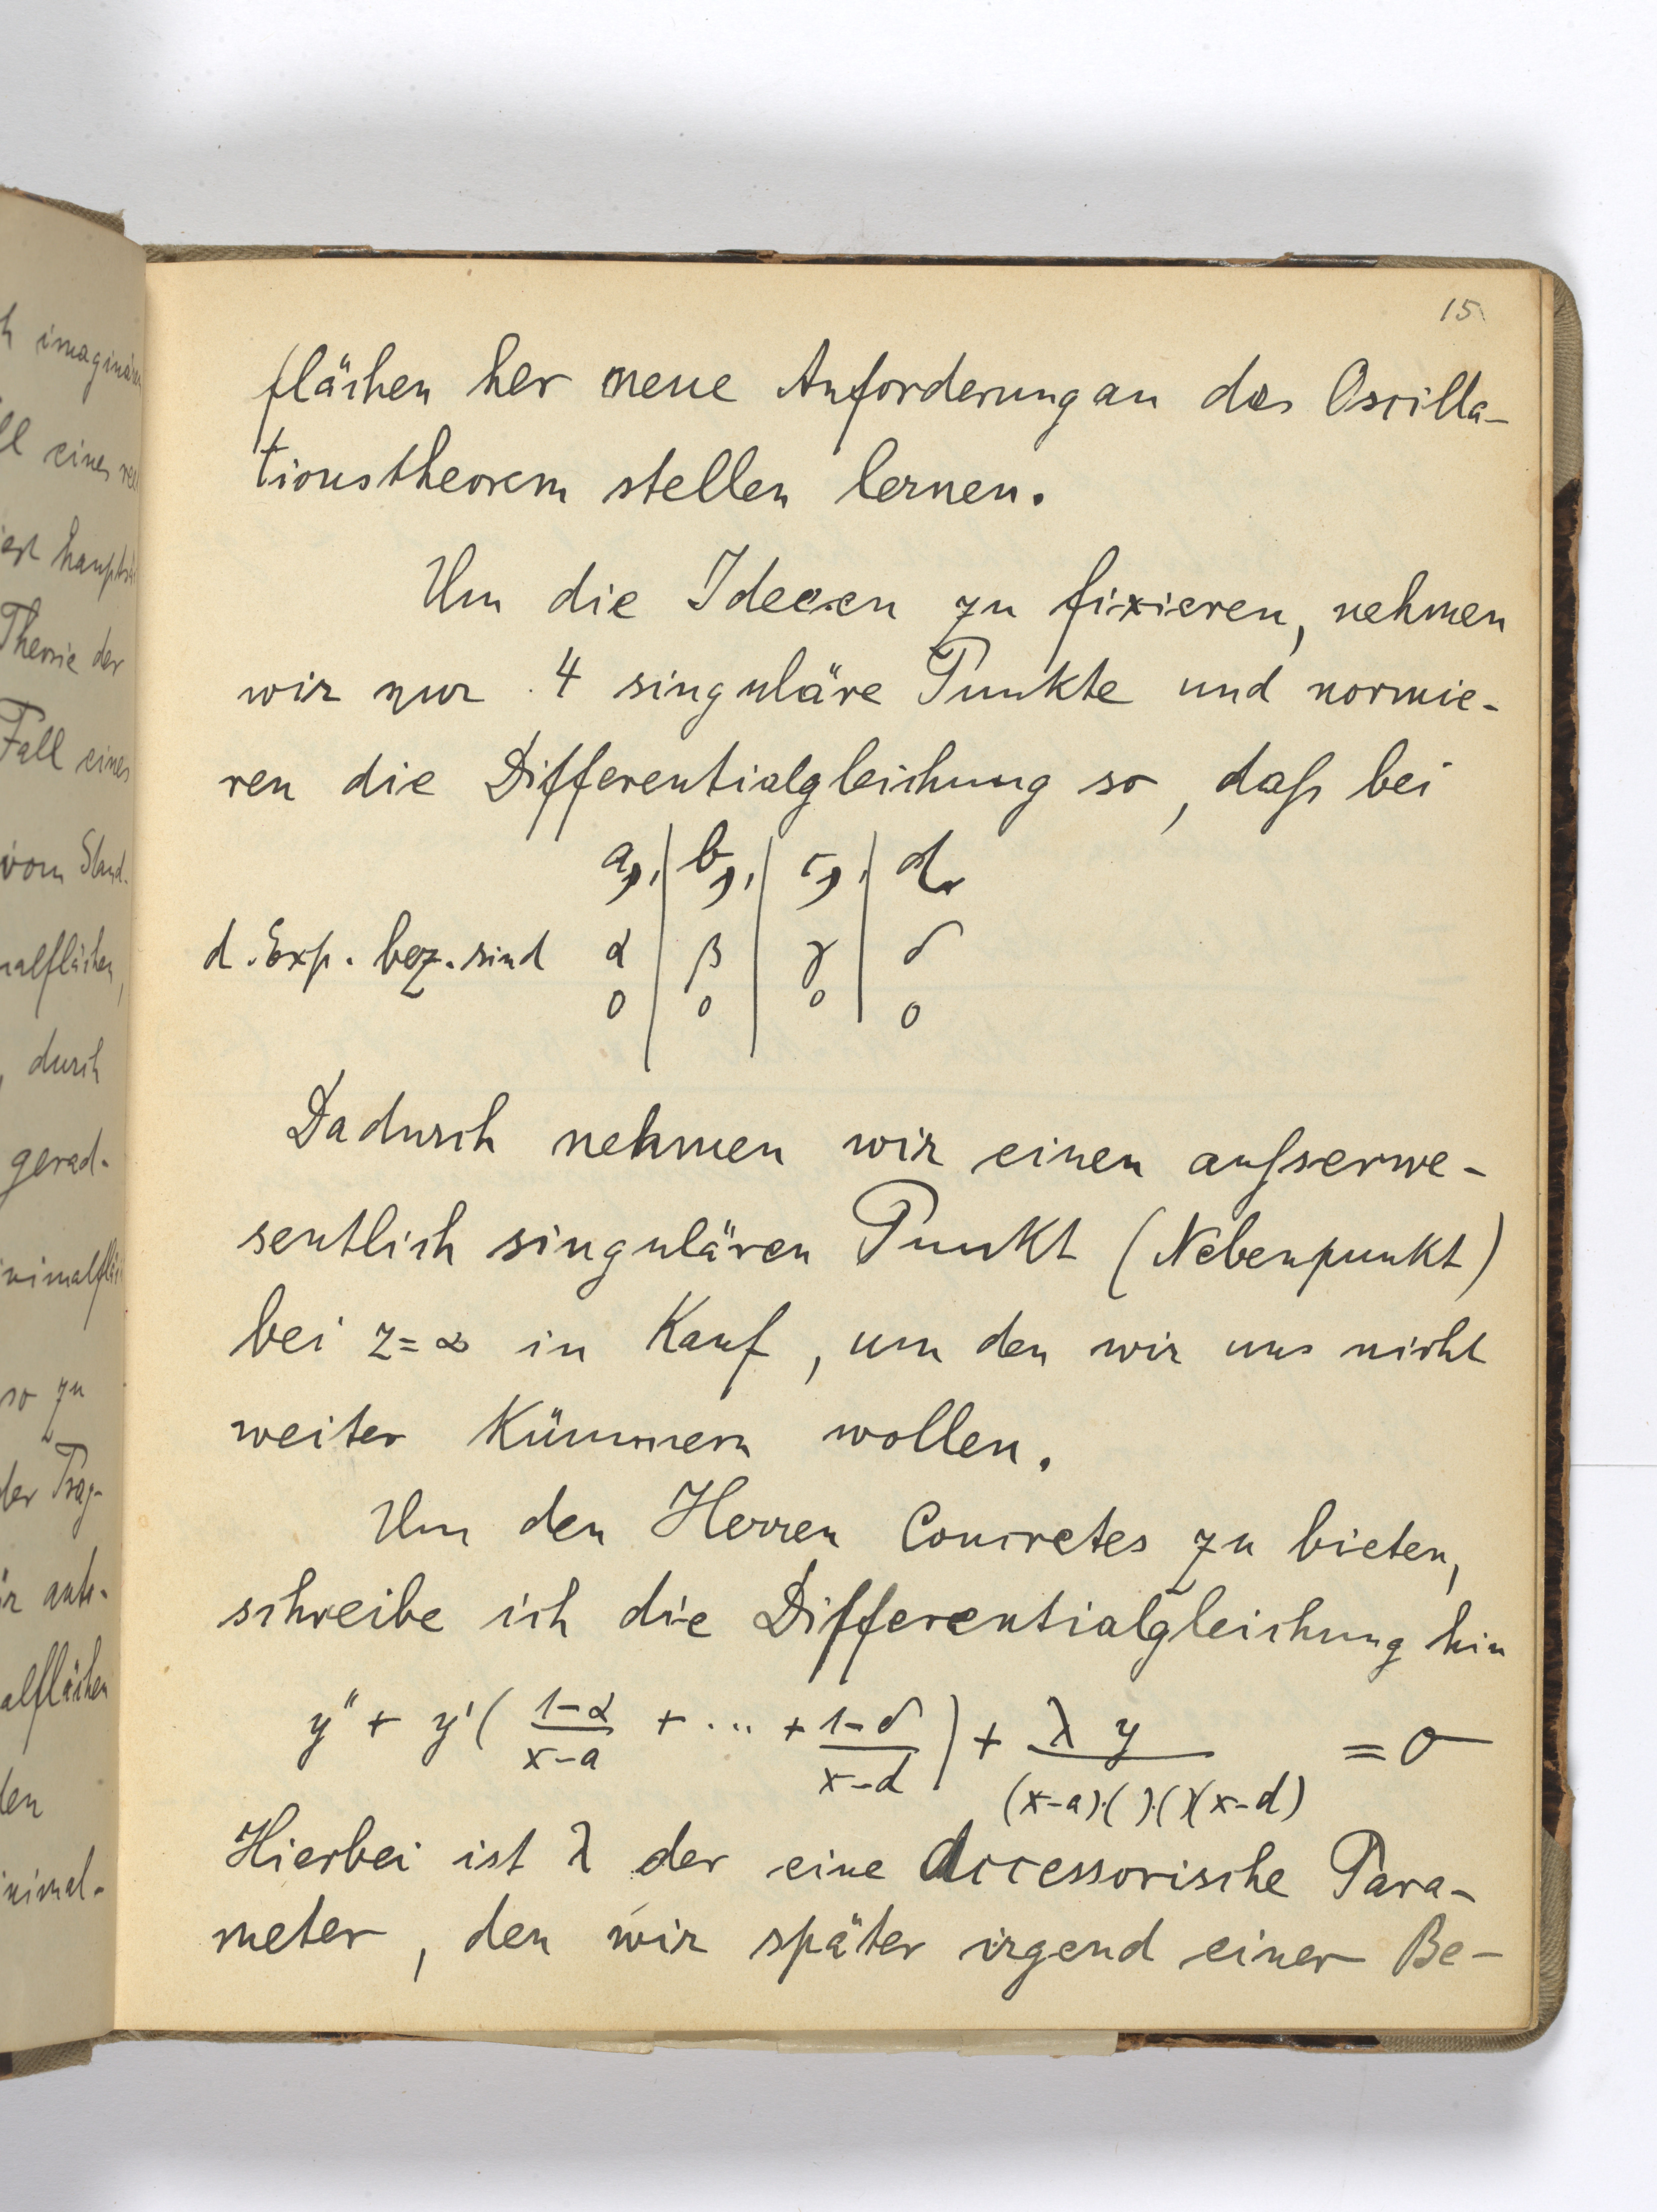 h imaginären
ll eines
ist
Theorie der
Fall eines
vom Stand-
nalflächen,
, durch
gerad-
inimalflä
so zu
der Trag-
alflächen
den
inimal-
15
flächen her neue Anforderung an das Oscilla-
tionstheorem stellen lernen.
Um die Ideeen zu fixieren, nehmen
wir nur 4 singuläre Punkte und normie-
ren die Differentialgleichung so, daß bei
a, | b, | c, | d
d. Exp. bez. sind α | β | γ | δ
0 | 0 | 0 | 0
Dadurch nehmen wir einen außerwe-
sentlich singulären Punkt (Nebenpunkt)
bei z=∞ in Kauf, um den wir uns nicht
weiter kümmern wollen.
Um den Herren Concretes zu bieten,
schreibe ich die Differentialgleichung hin
y'' + y' ( (1-α)/(x-a) + ... + (1-δ)/(x-d) ) + λ y / (x-a)·( )·( )(x-d) = 0
Hierbei ist λ der eine Accessorische Para-
meter, den wir später irgend einer Be-